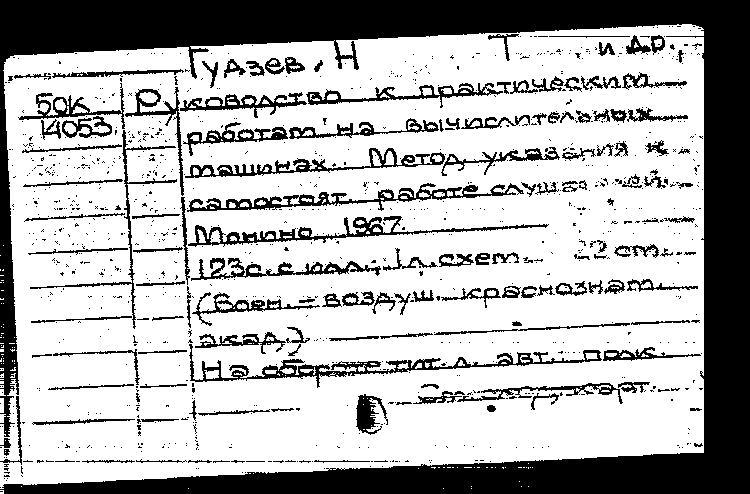 Гудзев, Н Т. и др.
50К Руководство к практическим
14053 работам на вычислительных
машинах. Метод, указания к
самостоят работе слушателей.
Монино, 1967.
123с. с илл.; 1л.схем. 22 см.
(Воен.-воздуш. краснознам.
акад.)
На обороте тит. л. авт.: полк.
См. след. карт.